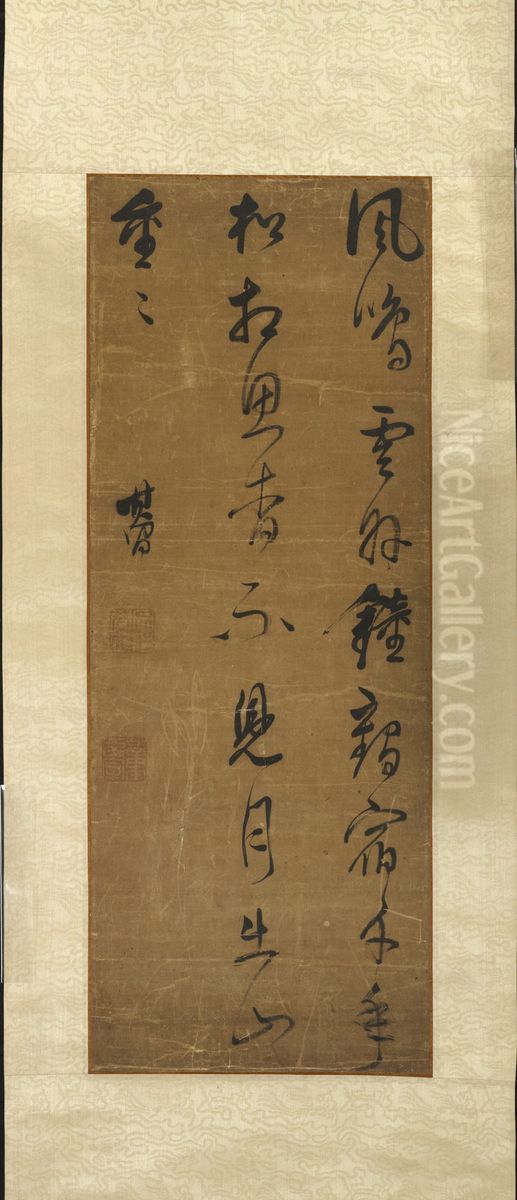 風鳴雲外鐘鶴宿千年
松相思杳不見月出山
重〻
其昌
NiceArtGallery.com